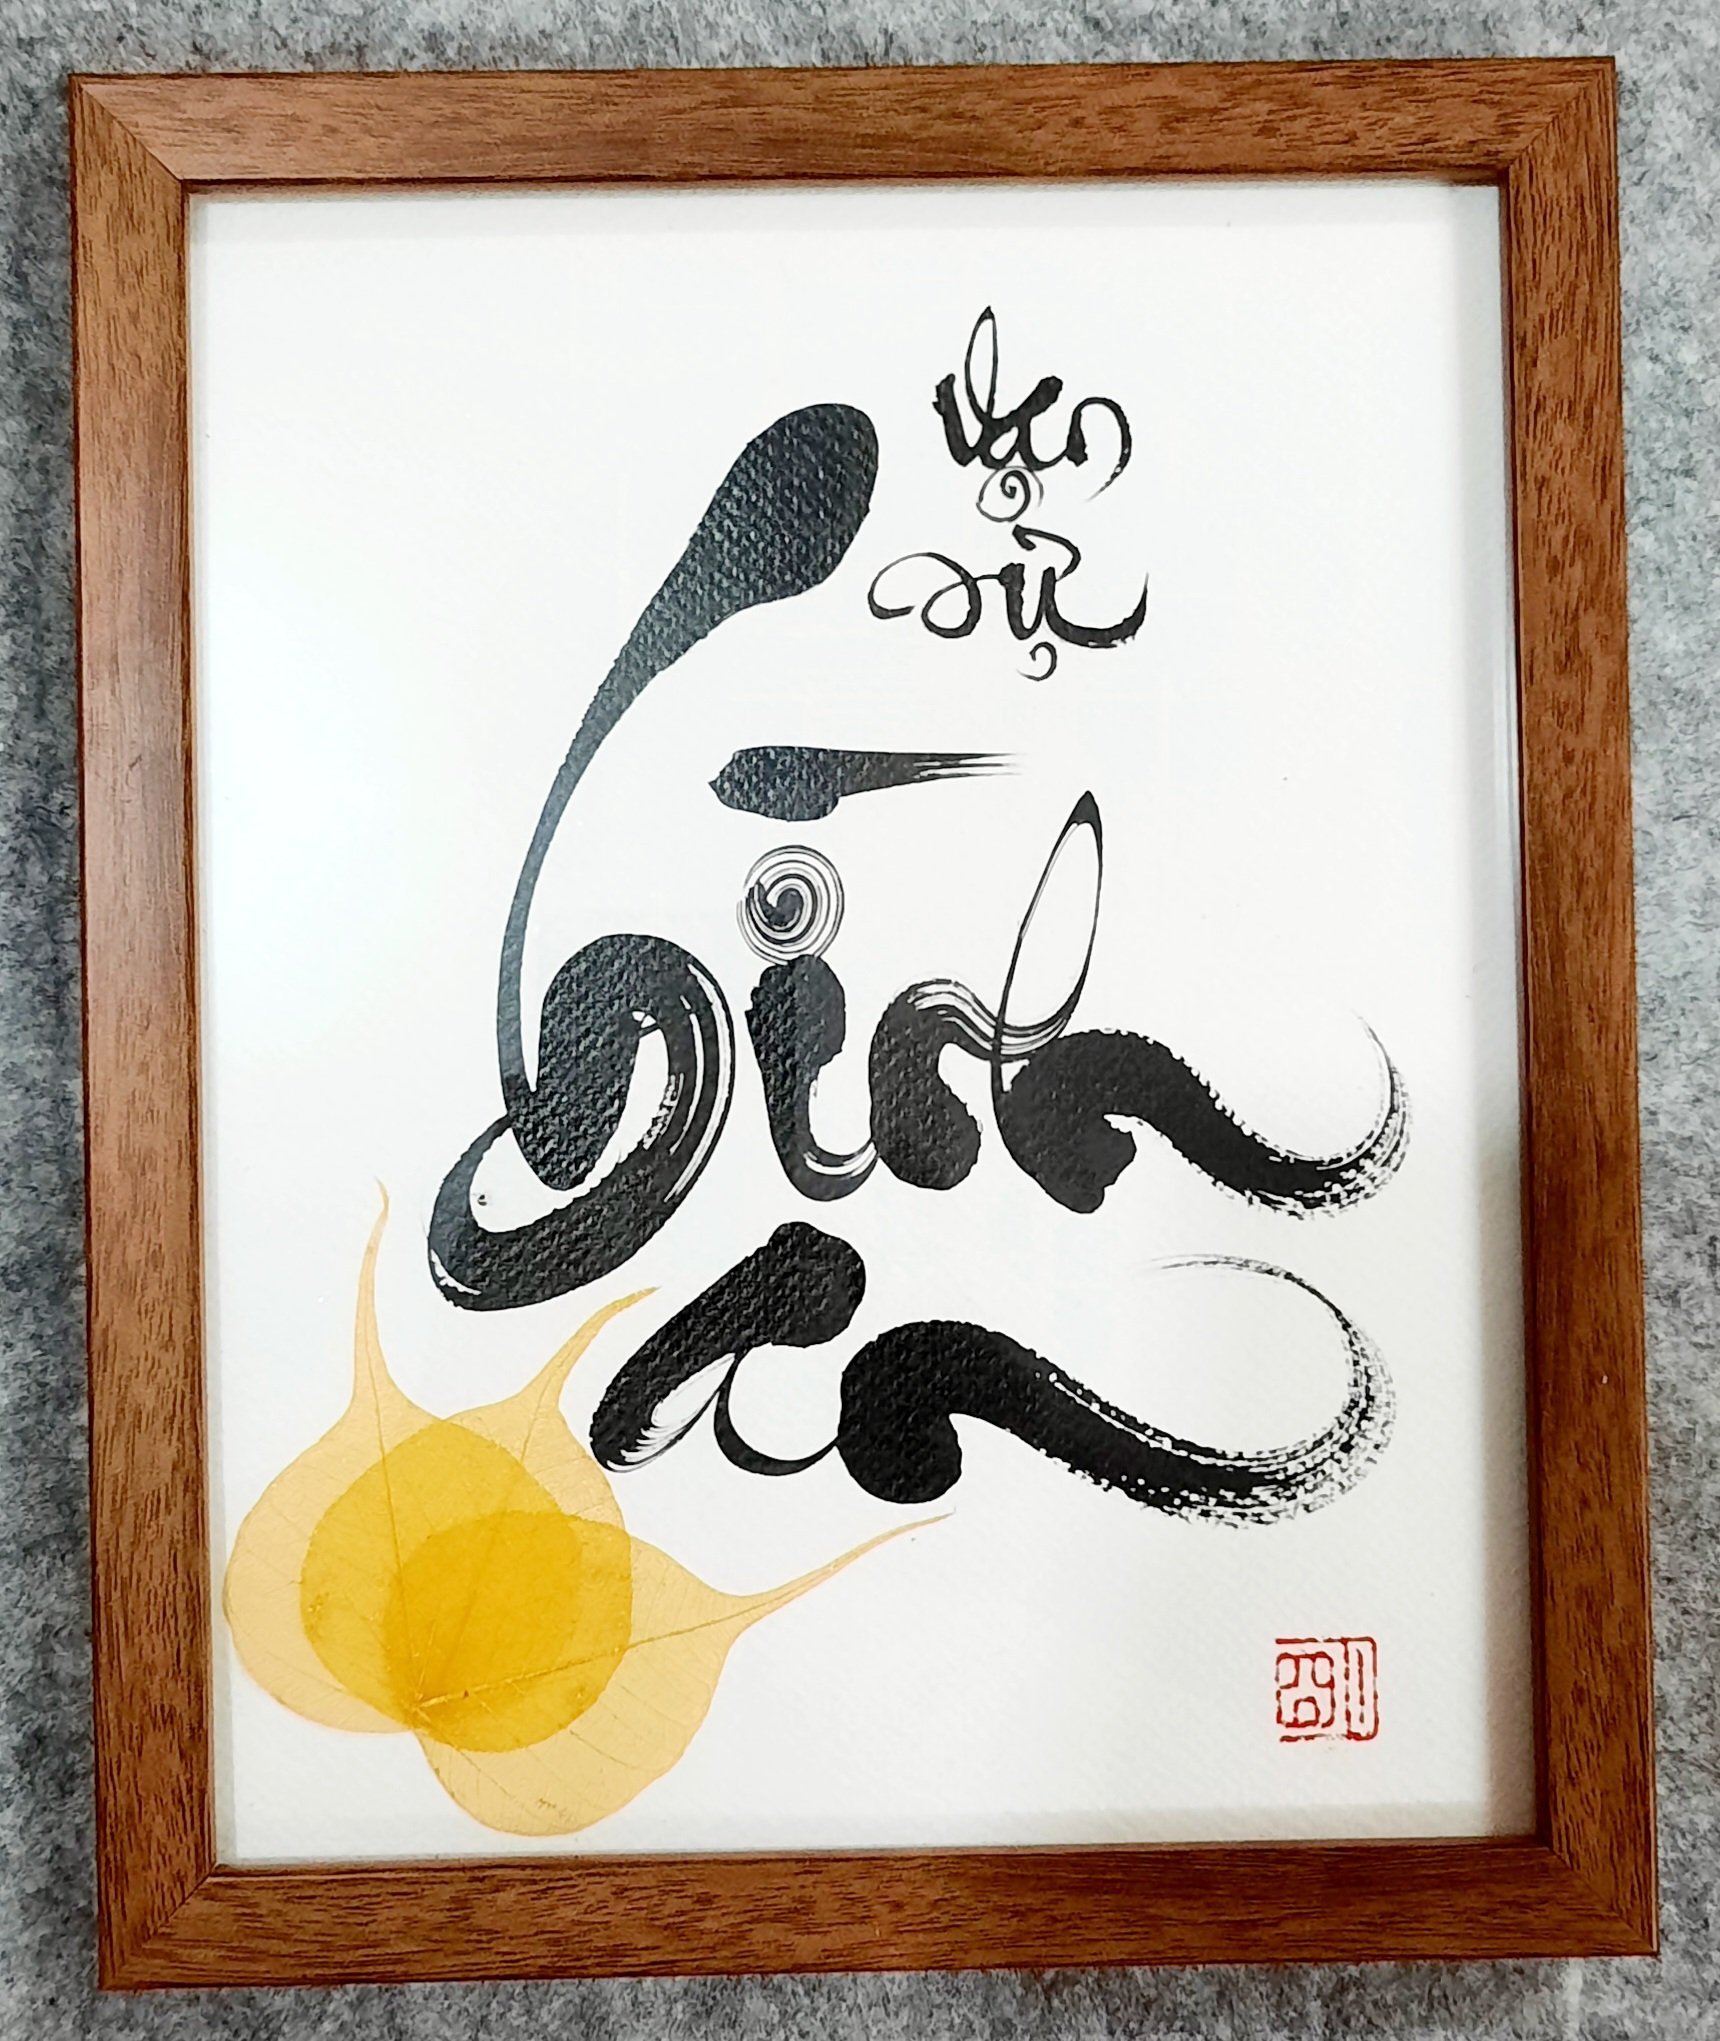 Vạn
sự
Bình
an